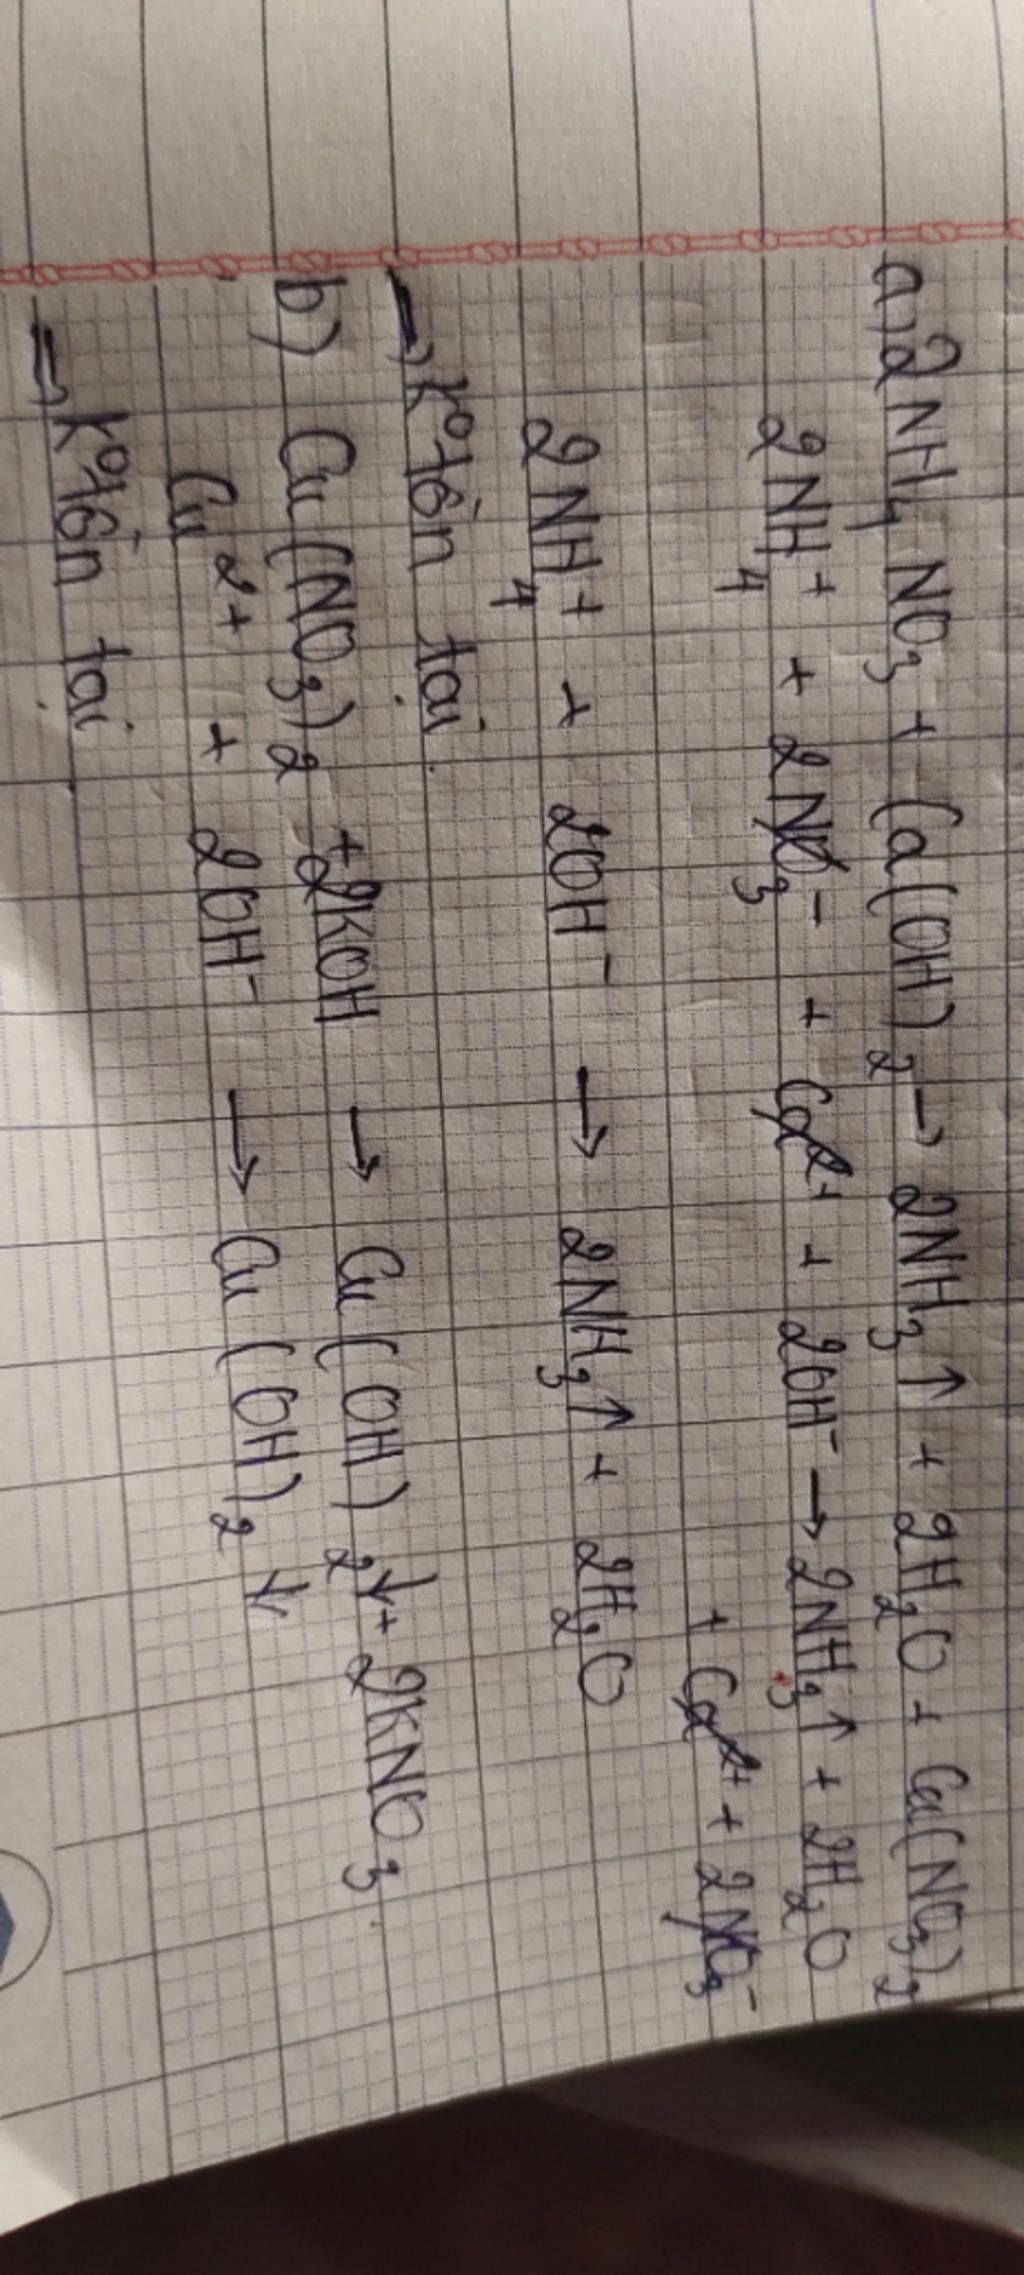 a) 2NH₄NO₃ + Ca(OH)₂ → 2NH₃↑ + 2H₂O + Ca(NO₃)₂
2NH₄⁺ + 2NO₃⁻ + Ca²⁺ + 2OH⁻ → 2NH₃↑ + 2H₂O
+ Ca²⁺ + 2NO₃⁻
2NH₄⁺ + 2OH⁻ → 2NH₃↑ + 2H₂O
→ K⁰ tồn tại.
b) Cu(NO₃)₂ + 2KOH → Cu(OH)₂↓ + 2KNO₃
Cu²⁺ + 2OH⁻ → Cu(OH)₂↓
⇒ K⁰ tồn tại.